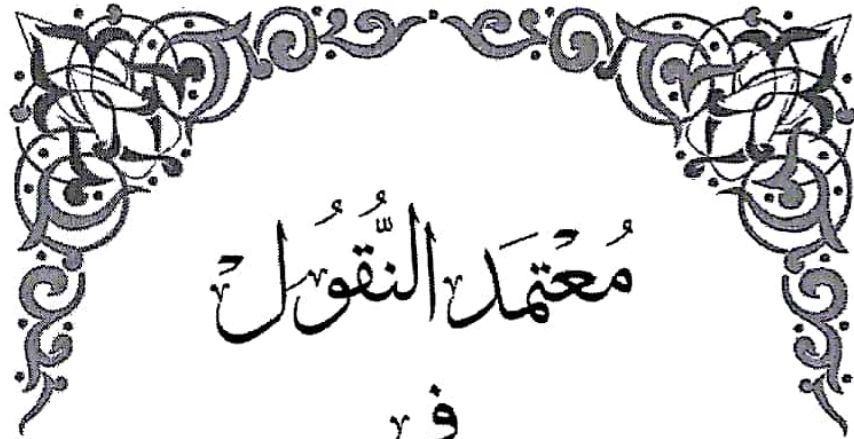 مُعْتَمَد النُّقُول
في